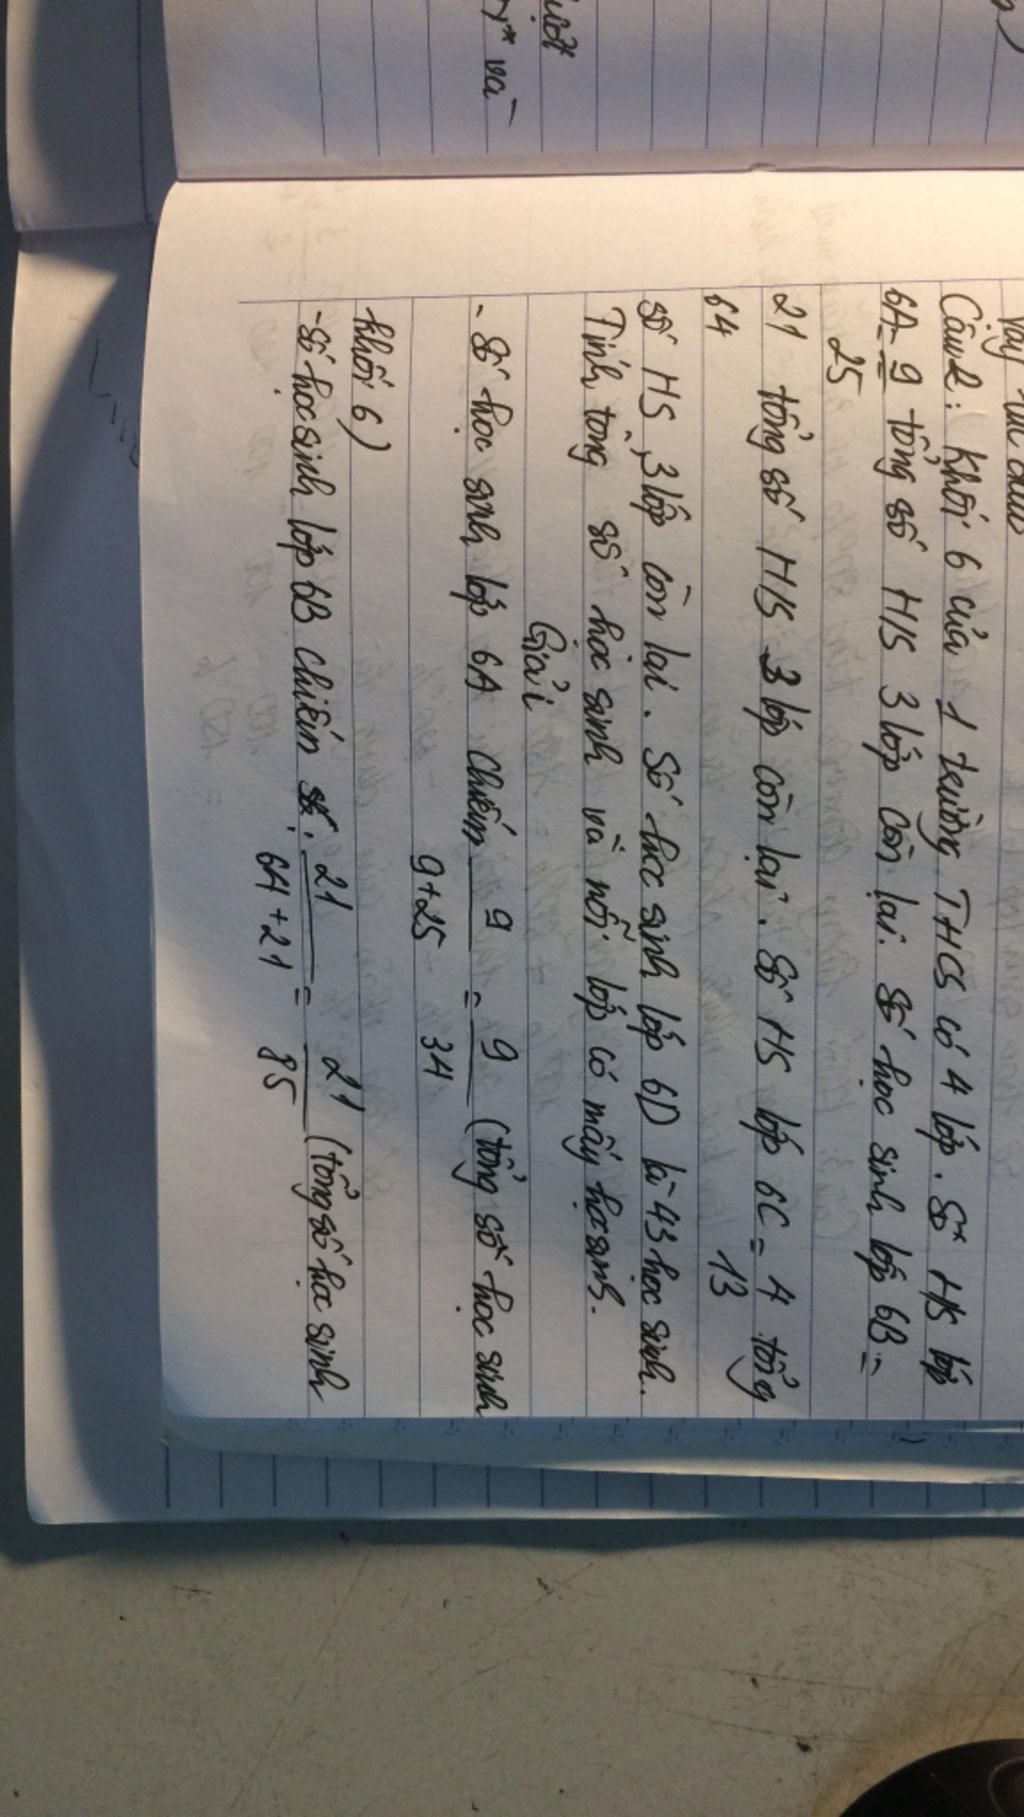 uột
và
Vậy
Câu 2: Khối 6 của 1 trường THCS có 4 lớp. Số HS lớp
6A = 9 tổng số HS 3 lớp còn lại. Số học sinh lớp 6B =
25
21 tổng số HS 3 lớp còn lại. Số HS lớp 6C = 4 tổng
64 13
số HS 3 lớp còn lại. Số học sinh lớp 6D là 43 học sinh.
Tính tổng số học sinh và mỗi lớp có mấy học sinh.
Giải
- Số học sinh lớp 6A chiếm 9 = 9 (tổng số học sinh
9+25 34
khối 6)
- Số học sinh lớp 6B chiếm số: 21 = 21 (tổng số học sinh
64+21 85